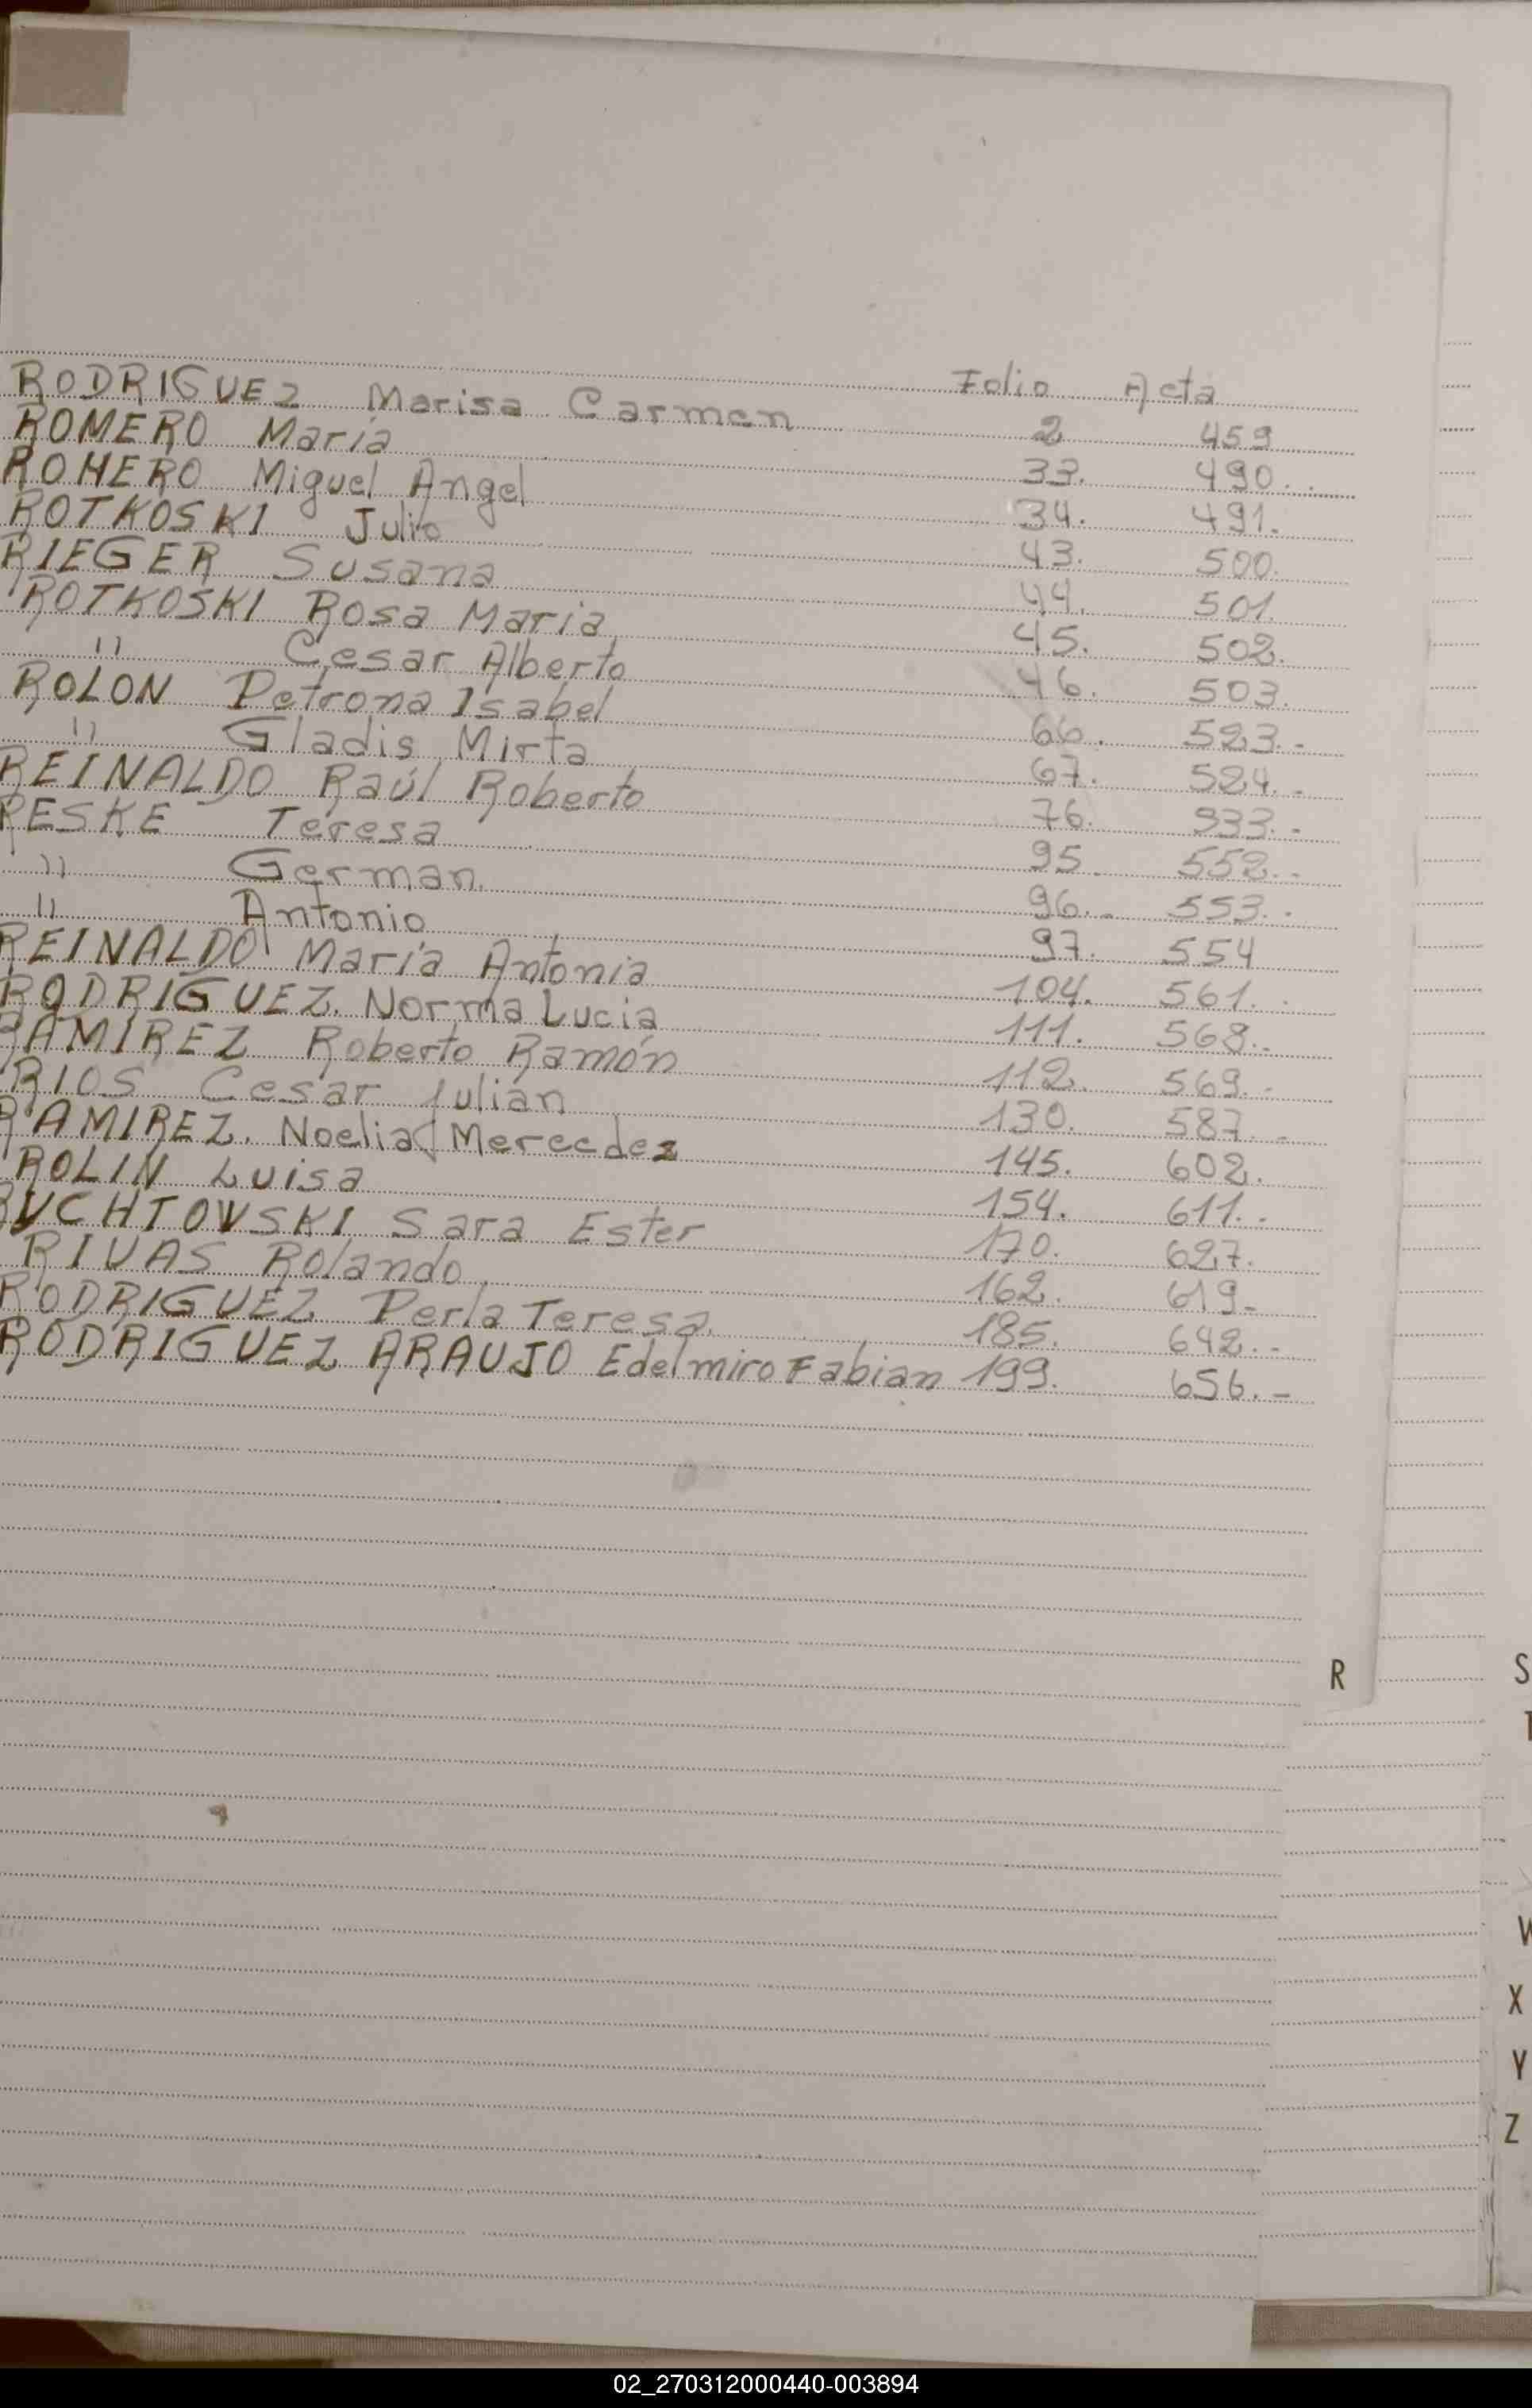 Folio Acta
RODRIGUEZ Marisa Carmen 2 459
ROMERO María 33. 490..
ROMERO Miguel Angel 34. 491.
ROTKOSKI Julio 43. 500.
RIEGER Susana 44. 501.
ROTKOSKI Rosa María 45. 502.
" Cesar Alberto 46. 503.
ROLON Petrona Isabel 66. 523.-
" Gladis Mirta 67. 524.-
REINALDO Raúl Roberto 76. 533.-
RESKE Teresa 95. 552.-
" German 96.- 553..
" Antonio 97. 554
REINALDO María Antonia 104. 561..
RODRIGUEZ. Norma Lucía 111. 568.-
RAMIREZ Roberto Ramón 112. 569.-
RIOS Cesar Julián 130. 587.-
RAMIREZ. Noelia Mercedez 145. 602.
ROLIN Luisa 154. 611.-
RUCHTOWSKI Sara Ester 170. 627.
RIVAS Rolando. 162. 619-
RODRIGUEZ Perla Teresa. 185. 642.-
RODRIGUEZ ARAUJO Edelmiro Fabian 199. 656.-
R
S
T
W
X
Y
Z
02_270312000440-003894